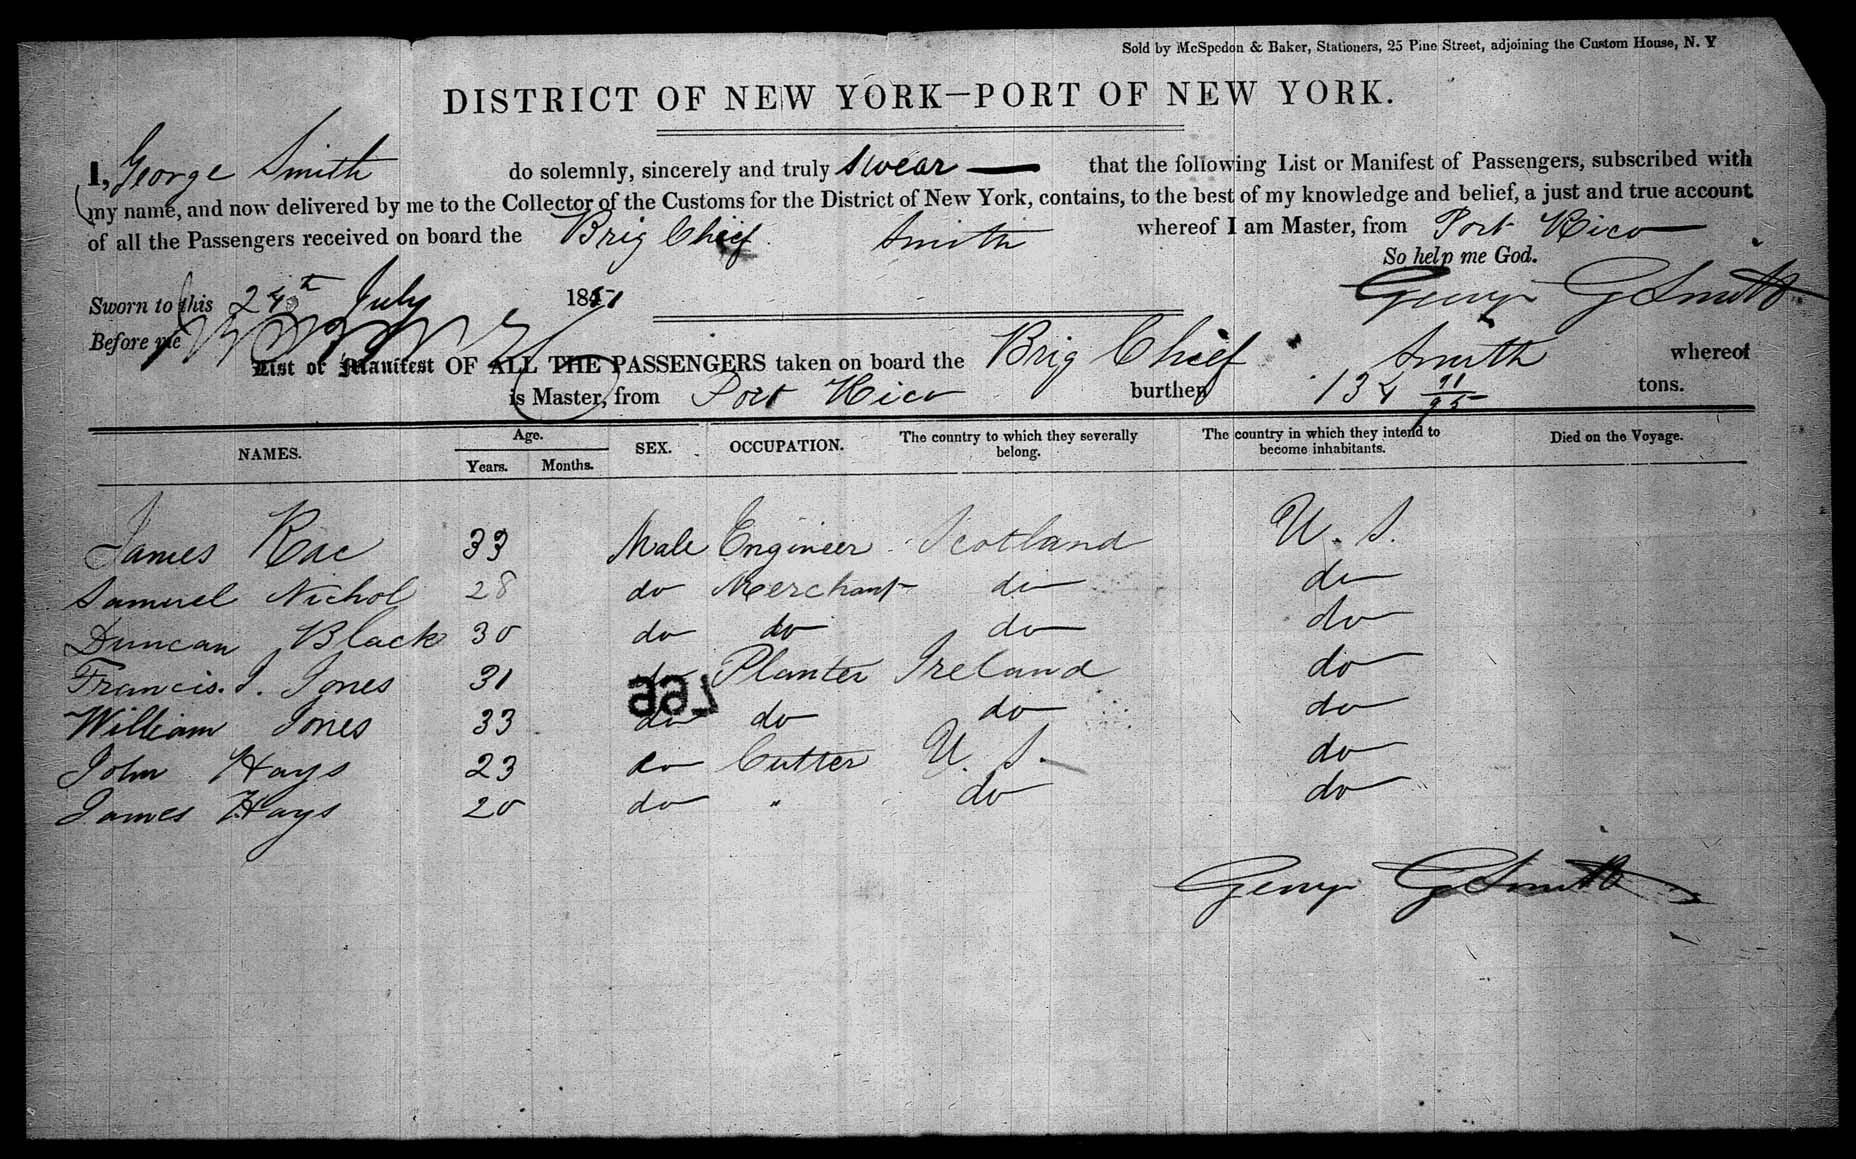 Sold by McSpedon & Baker, Stationers, 25 Pine Street, adjoining the Custom House, N. Y
DISTRICT OF NEW YORK—PORT OF NEW YORK.
I, George Smith do solemnly, sincerely and truly swear — that the following List or Manifest of Passengers, subscribed with
my name, and now delivered by me to the Collector of the Customs for the District of New York, contains, to the best of my knowledge and belief, a just and true account
of all the Passengers received on board the Brig Chief Smith whereof I am Master, from Port Rico
So help me God.
Sworn to this 24th July 1851 George G Smith
Before me
List or Manifest OF ALL THE PASSENGERS taken on board the Brig Chief Smith whereof
is Master, from Port Rico burthen 134 91/95 tons.
NAMES. Age. Years. Months. SEX. OCCUPATION. The country to which they severally belong. The country in which they intend to become inhabitants. Died on the Voyage.
James Rae 33 Male Engineer Scotland U. S.
Samuel Nichol 28 do Merchant do do
Duncan Black 30 do do do do
Francis. J. Jones 31 do Planter Ireland do
William Jones 33 do do do do
John Hays 23 do Cutter U. S. do
James Hays 20 do " do do
George G Smith